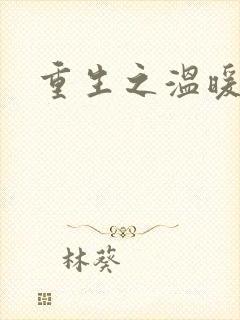 重生之温暖
林葵